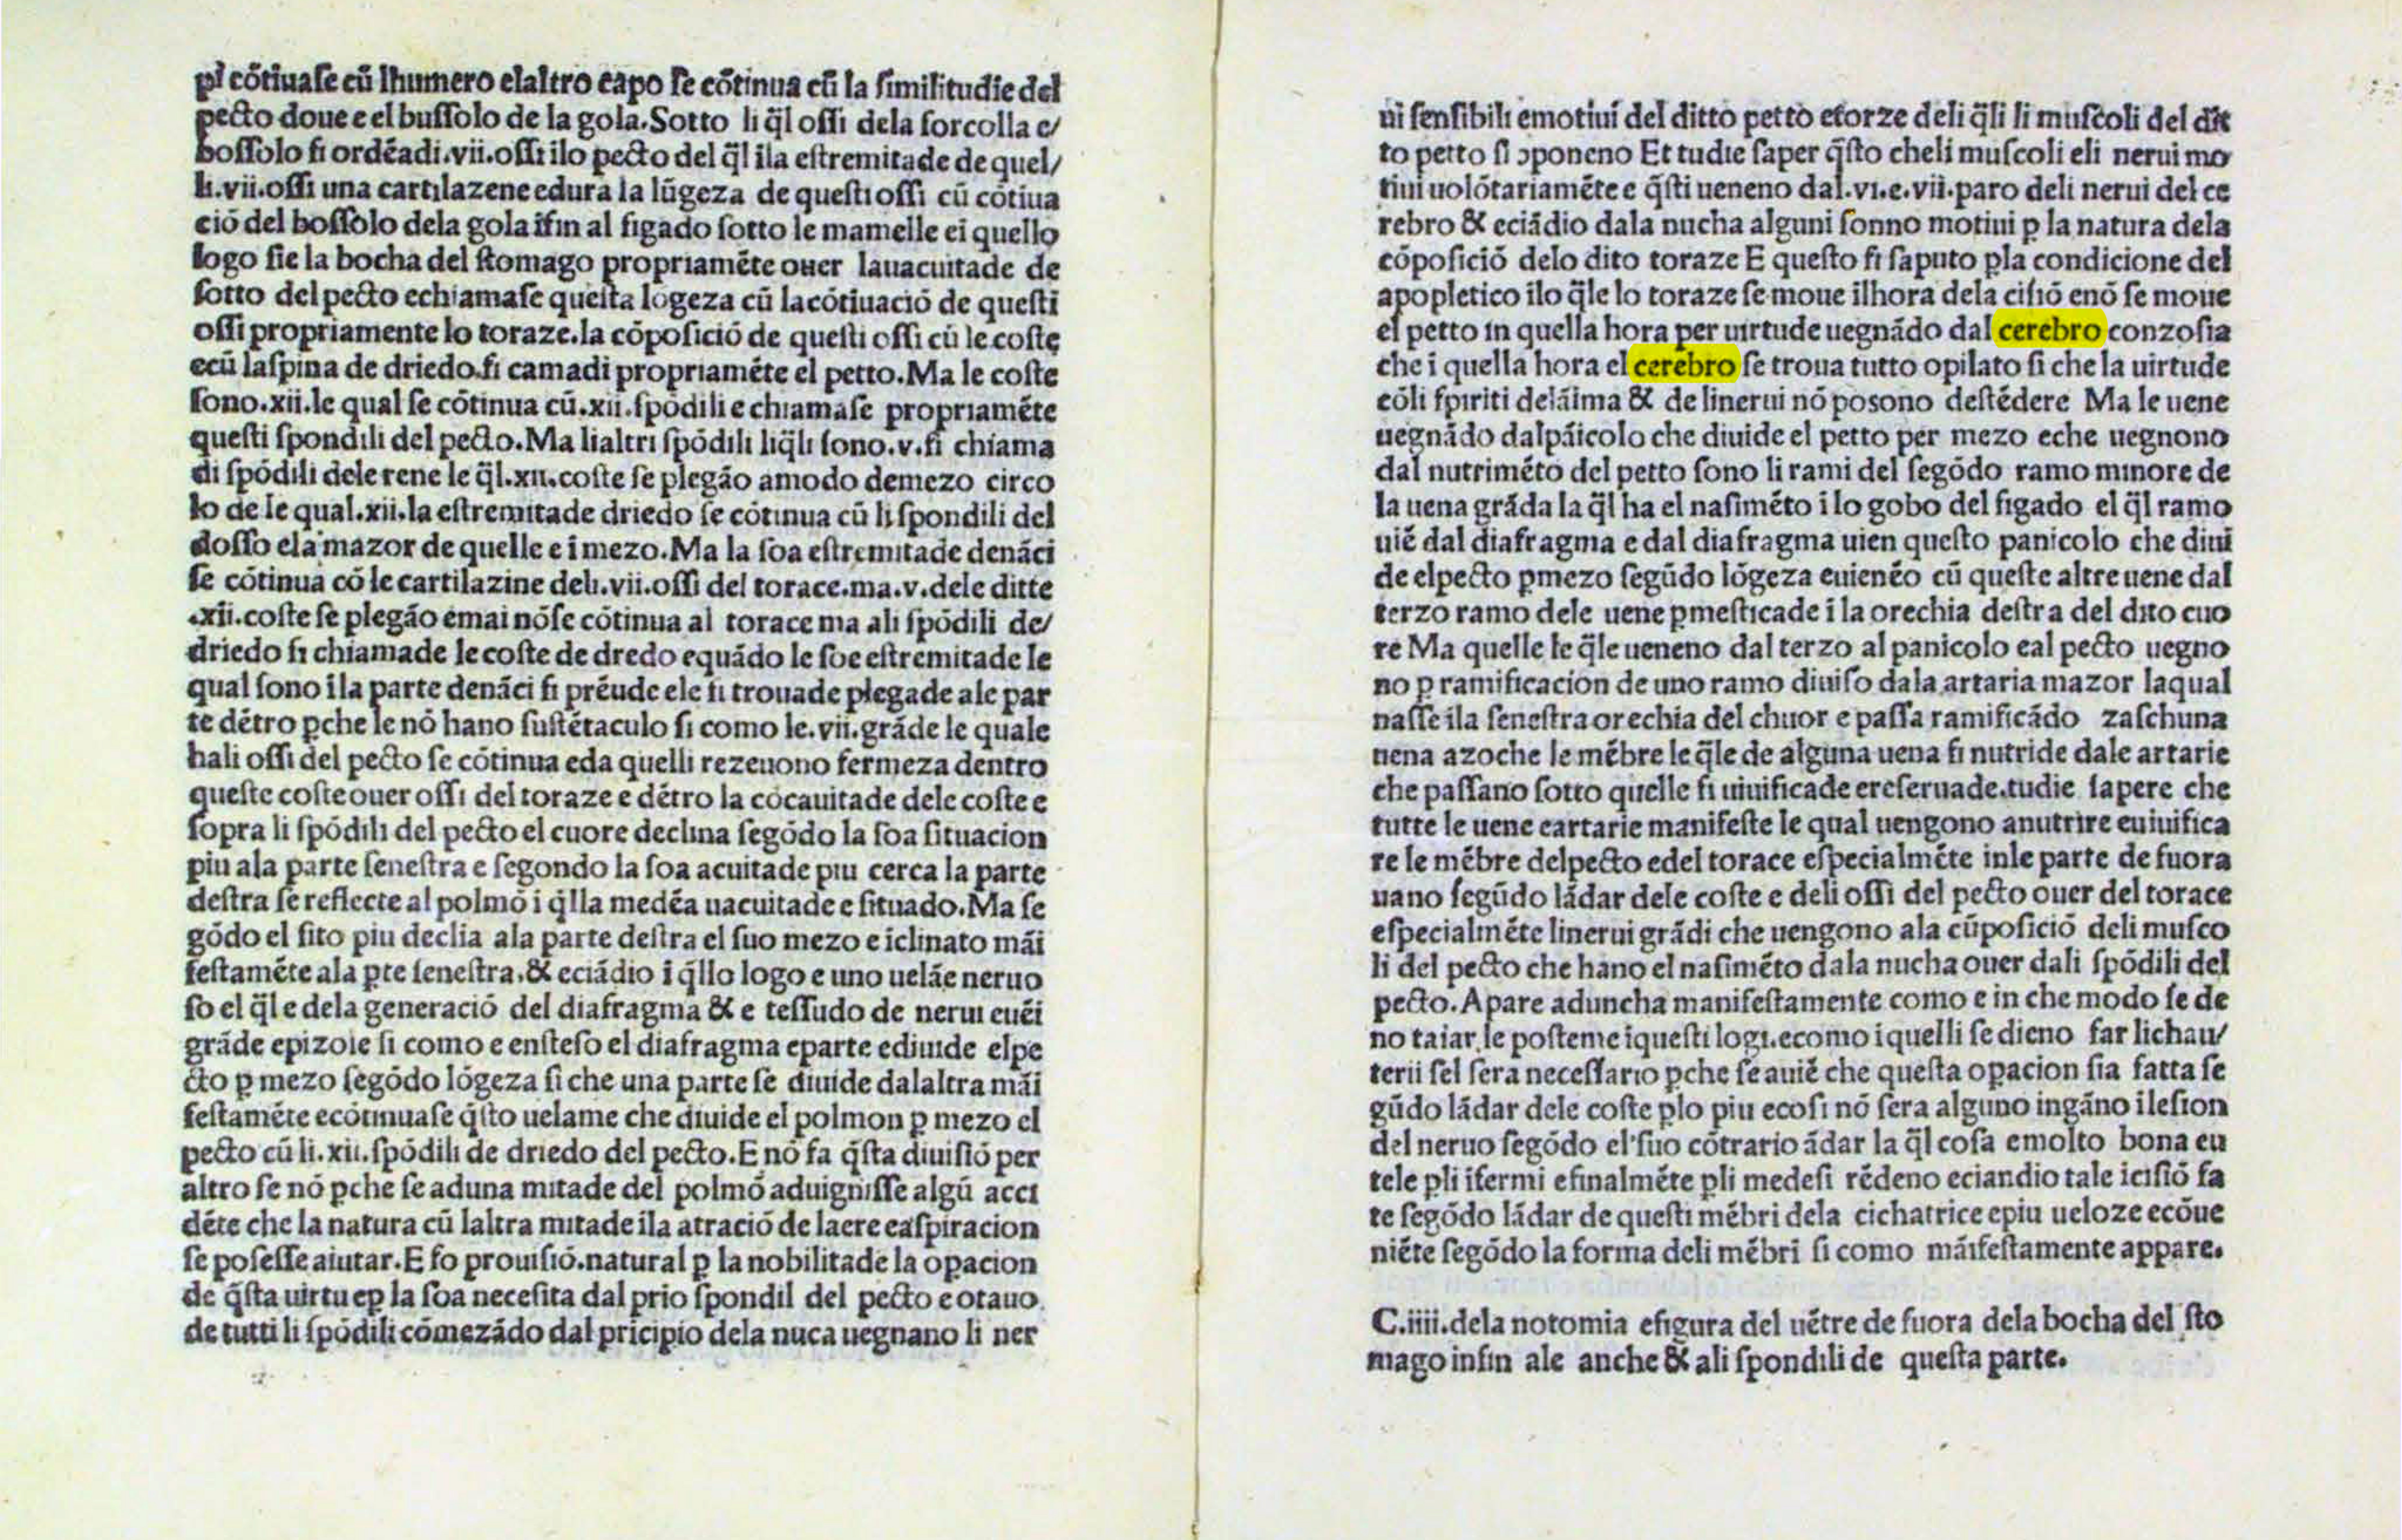 pl̄ cōtiuaſe cū lhumero elaltro capo ſe cōtinua cū la ſimilitudīe del
pecto doue e el buſſolo de la gola. Sotto li q̄l oſſi dela forcolla e/
boſſolo ſi ordēadi .vii. oſſi ilo pecto del q̄l ila eſtremitade de quel/
li .vii. oſſi una cartilazene edura la lūgeza de queſti oſſi cū cōtiua
ció del boſſolo dela gola īfin al figado ſotto le mamelle ei quello
logo ſie la bocha del ſtomago propriamēte ouer lauacuitade de
ſotto del pecto echiamaſe queſta logeza cū lacōtiuació de queſti
oſſi propriamente lo toraze. la cōpoſició de queſti oſſi cū le coſte
ecū laſpina de driedo ſi camadi propriamēte el petto. Ma le coſte
ſono .xii. le qual ſe cōtinua cū .xii. ſpōdili e chiamaſe propriamēte
queſti ſpondili del pecto. Ma lialtri ſpōdili liq̄li ſono .v. ſi chiama
di ſpōdili dele rene le q̄l .xii. coſte ſe plegāo amodo demezo circo
lo de le qual .xii. la eſtremitade driedo ſe cōtinua cū li ſpondili del
doſſo ela mazor de quelle e i mezo. Ma la ſoa eſtremitade denāci
ſe cōtinua cō le cartilazine deli .vii. oſſi del torace. ma .v. dele ditte
.xii. coſte ſe plegāo emai nōſe cōtinua al torace ma ali ſpōdili de/
driedo ſi chiamade le coſte de dredo equādo le ſoe eſtremitade le
qual ſono ila parte denāci ſi prēude ele ſi trouade plegade ale par
te dētro ꝑche le nō hano ſuſtētaculo ſi como le .vii. grāde le quale
hali oſſi del pecto ſe cōtinua eda quelli rezeuono fermeza dentro
queſte coſte ouer oſſi del toraze e dētro la cōcauitade dele coſte e
ſopra li ſpōdili del pecto el cuore declina ſegōdo la ſoa ſituacion
piu ala parte ſeneſtra e ſegondo la ſoa acuitade piu cerca la parte
deſtra ſe reflecte al polmō i q̄lla medēa uacuitade e ſituado. Ma ſe
gōdo el ſito piu declia ala parte deſtra el ſuo mezo e iclinato māi
feſtamēte ala ꝑte ſeneſtra. & eciādio ī q̄llo logo e uno uelāe neruo
ſo el q̄l e dela generació del diafragma & e teſſudo de nerui euēi
grāde epizole ſi como e enſteſo el diafragma eparte ediuide elpe
cto ꝑ mezo ſegōdo lōgeza ſi che una parte ſe diuide dalaltra māi
feſtamēte ecōtinuaſe q̄ſto uelame che diuide el polmon ꝑ mezo el
pecto cū li .xii. ſpōdili de driedo del pecto. E nō fa q̄ſta diuiſió per
altro ſe nō ꝑche ſe aduna mitade del polmō aduigniſſe algū acci
dēte che la natura cū laltra mitade ila atració de laere eaſpiracion
ſe poſeſſe aiutar. E fo prouiſió. natural ꝑ la nobilitade la oꝑacion
de q̄ſta uirtu eꝑ la ſoa neceſita dal prio ſpondil del pecto e otauo
de tutti li ſpōdili cōmezādo dal pricipio dela nuca uegnano li ner
ui ſenſibili emotiui del ditto petto eforze deli q̄li li muſcoli del dit
to petto ſi ↄponeno Et tudie ſaper q̄ſto cheli muſcoli eli nerui mo
tiui uolōtariamēte e q̄ſti ueneno dal .vi. e .vii. paro deli nerui del ce
rebro & eciādio dala nucha alguni ſonno motiui ꝑ la natura dela
cōpoſició delo dito toraze E queſto ſi ſaputo ꝑla condicione del
apopletico ilo q̄le lo toraze ſe moue ilhora dela ciſió enō ſe moue
el petto in quella hora per uirtude uegnādo dal cerebro conzoſia
che i quella hora el cerebro ſe troua tutto opilato ſi che la uirtude
cōli ſpiriti delāima & de linerui nō poſono deſtēdere Ma le uene
uegnādo dalpāicolo che diuide el petto per mezo eche uegnono
dal nutrimēto del petto ſono li rami del ſegōdo ramo minore de
la uena grāda la q̄l ha el naſimēto i lo gobo del figado el q̄l ramo
uiē dal diafragma e dal diafragma uien queſto panicolo che diui
de elpecto ꝑmezo ſegūdo lōgeza euienēo cū queſte altre uene dal
terzo ramo dele uene ꝑmeſticade i la orechia deſtra del dito cuo
re Ma quelle le q̄le ueneno dal terzo al panicolo eal pecto uegno
no ꝑ ramificacion de uno ramo diuiſo dala artaria mazor laqual
naſſe ila ſeneſtra orechia del chuor e paſſa ramificādo zaſchuna
uena azoche le mēbre le q̄le de alguna uena ſi nutride dale artarie
che paſſano ſotto quelle ſi uiuificade ereſeruade. tudie ſapere che
tutte le uene eartarie manifeſte le qual uengono anutrire euiuifica
re le mēbre delpecto edel torace eſpecialmēte inle parte de fuora
uano ſegūdo lādar dele coſte e deli oſſi del pecto ouer del torace
eſpecialmēte linerui grādi che uengono ala cūpoſició deli muſco
li del pecto che hano el naſimēto dala nucha ouer dali ſpōdili del
pecto. Apare aduncha manifeſtamente como e in che modo ſe de
no taiar le poſteme iqueſti logi. ecomo i quelli ſe dieno far lichau/
terii ſel ſera neceſſario ꝑche ſe auiē che queſta oꝑacion ſia fatta ſe
gūdo lādar dele coſte ꝑlo piu ecoſi nō ſera alguno ingāno ileſion
del neruo ſegōdo el ſuo cōtrario ādar la q̄l coſa emolto bona eu
tele ꝑli ifermi efinalmēte ꝑli medeſi rēdeno eciandio tale iciſió fa
te ſegōdo lādar de queſti mēbri dela cichatrice epiu ueloze ecōue
niēte ſegōdo la forma deli mēbri ſi como māifeſtamente appare.
C. iiii. dela notomia efigura del uētre de fuora dela bocha del ſto
mago infin ale anche & ali ſpondili de queſta parte.